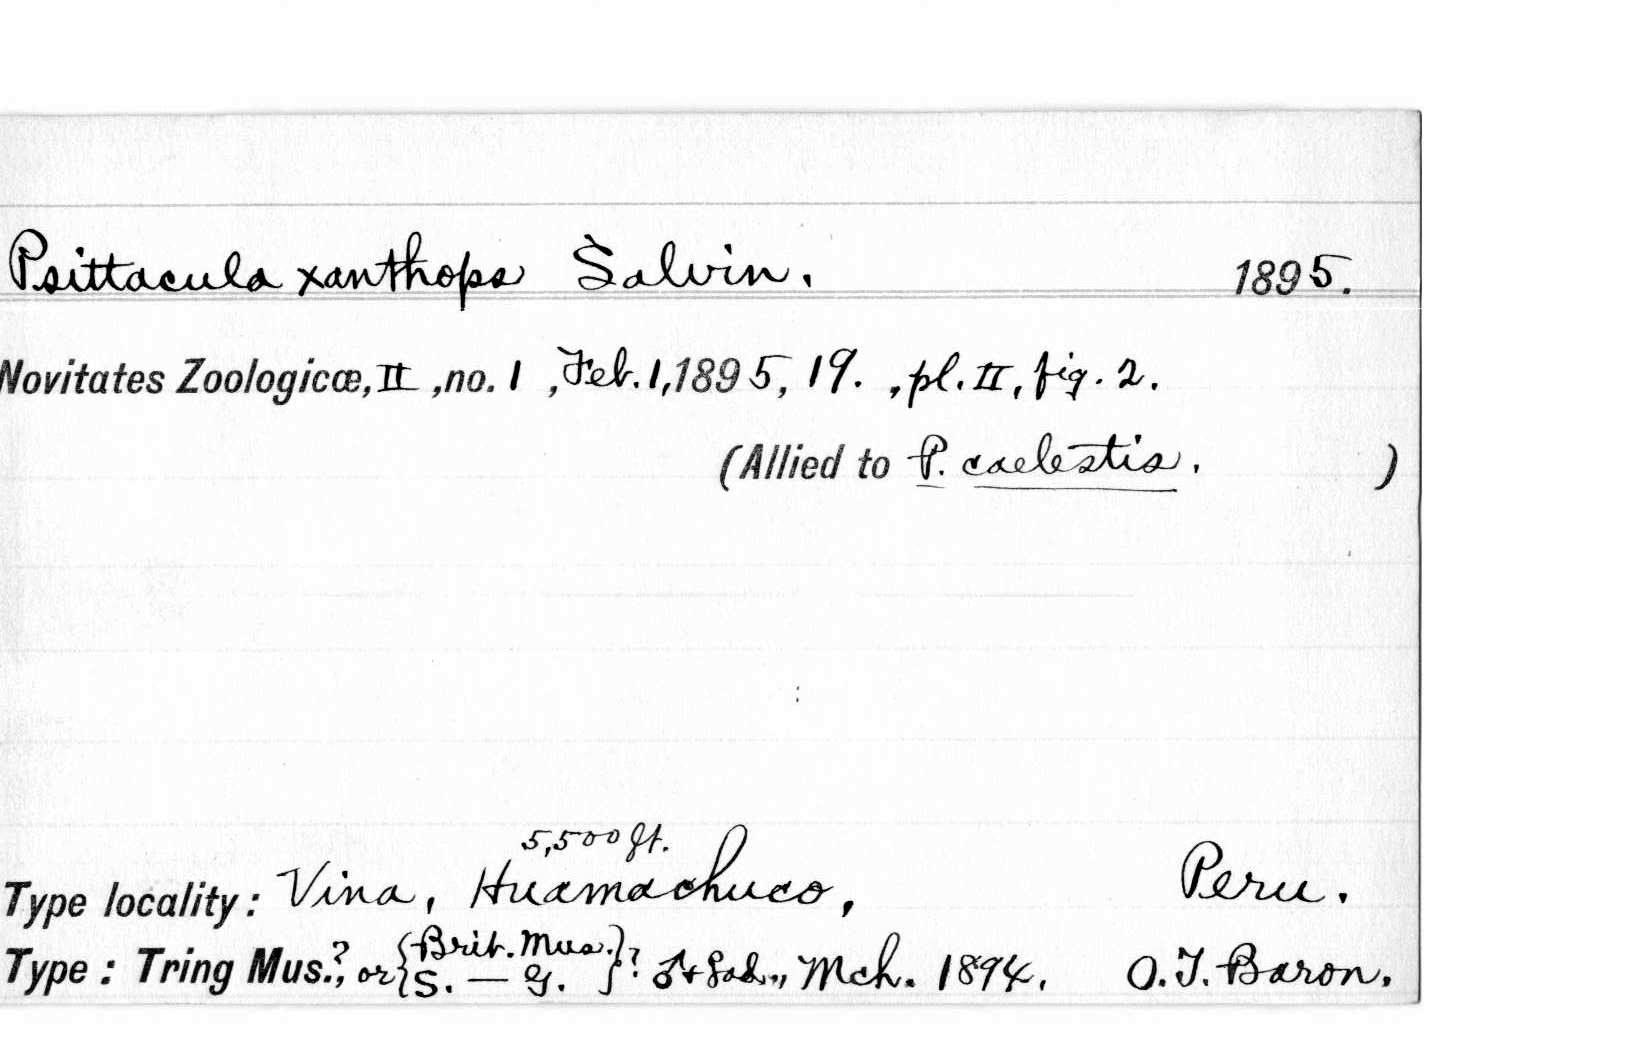 Psittacula xanthops Salvin. 1895.
Novitates Zoologicæ, II, no. 1, Feb. 1, 1895, 19., pl. II, fig. 2.
(Allied to P. caelestis. )
5,500 ft.
Type locality: Vina, Huamachuco, Peru.
Type: Tring Mus.?, or {Brit. Mus. S. — G.}? ♂ + ad., Mch. 1894. O.T. Baron.